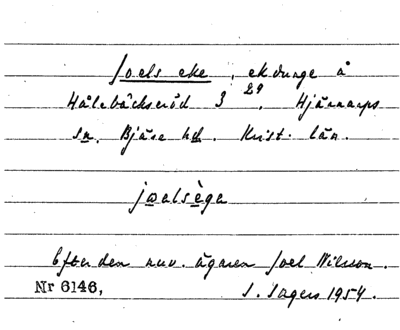 Joels eke, ekdunge å
Hålebäckseröd 3 29, Hjärnarps
sn. Bjäre hd. Krist. län.
joalsèga
Efter den nuv. ägaren Joel Nilsson.
Nr 6146, S. Sagers 1954.